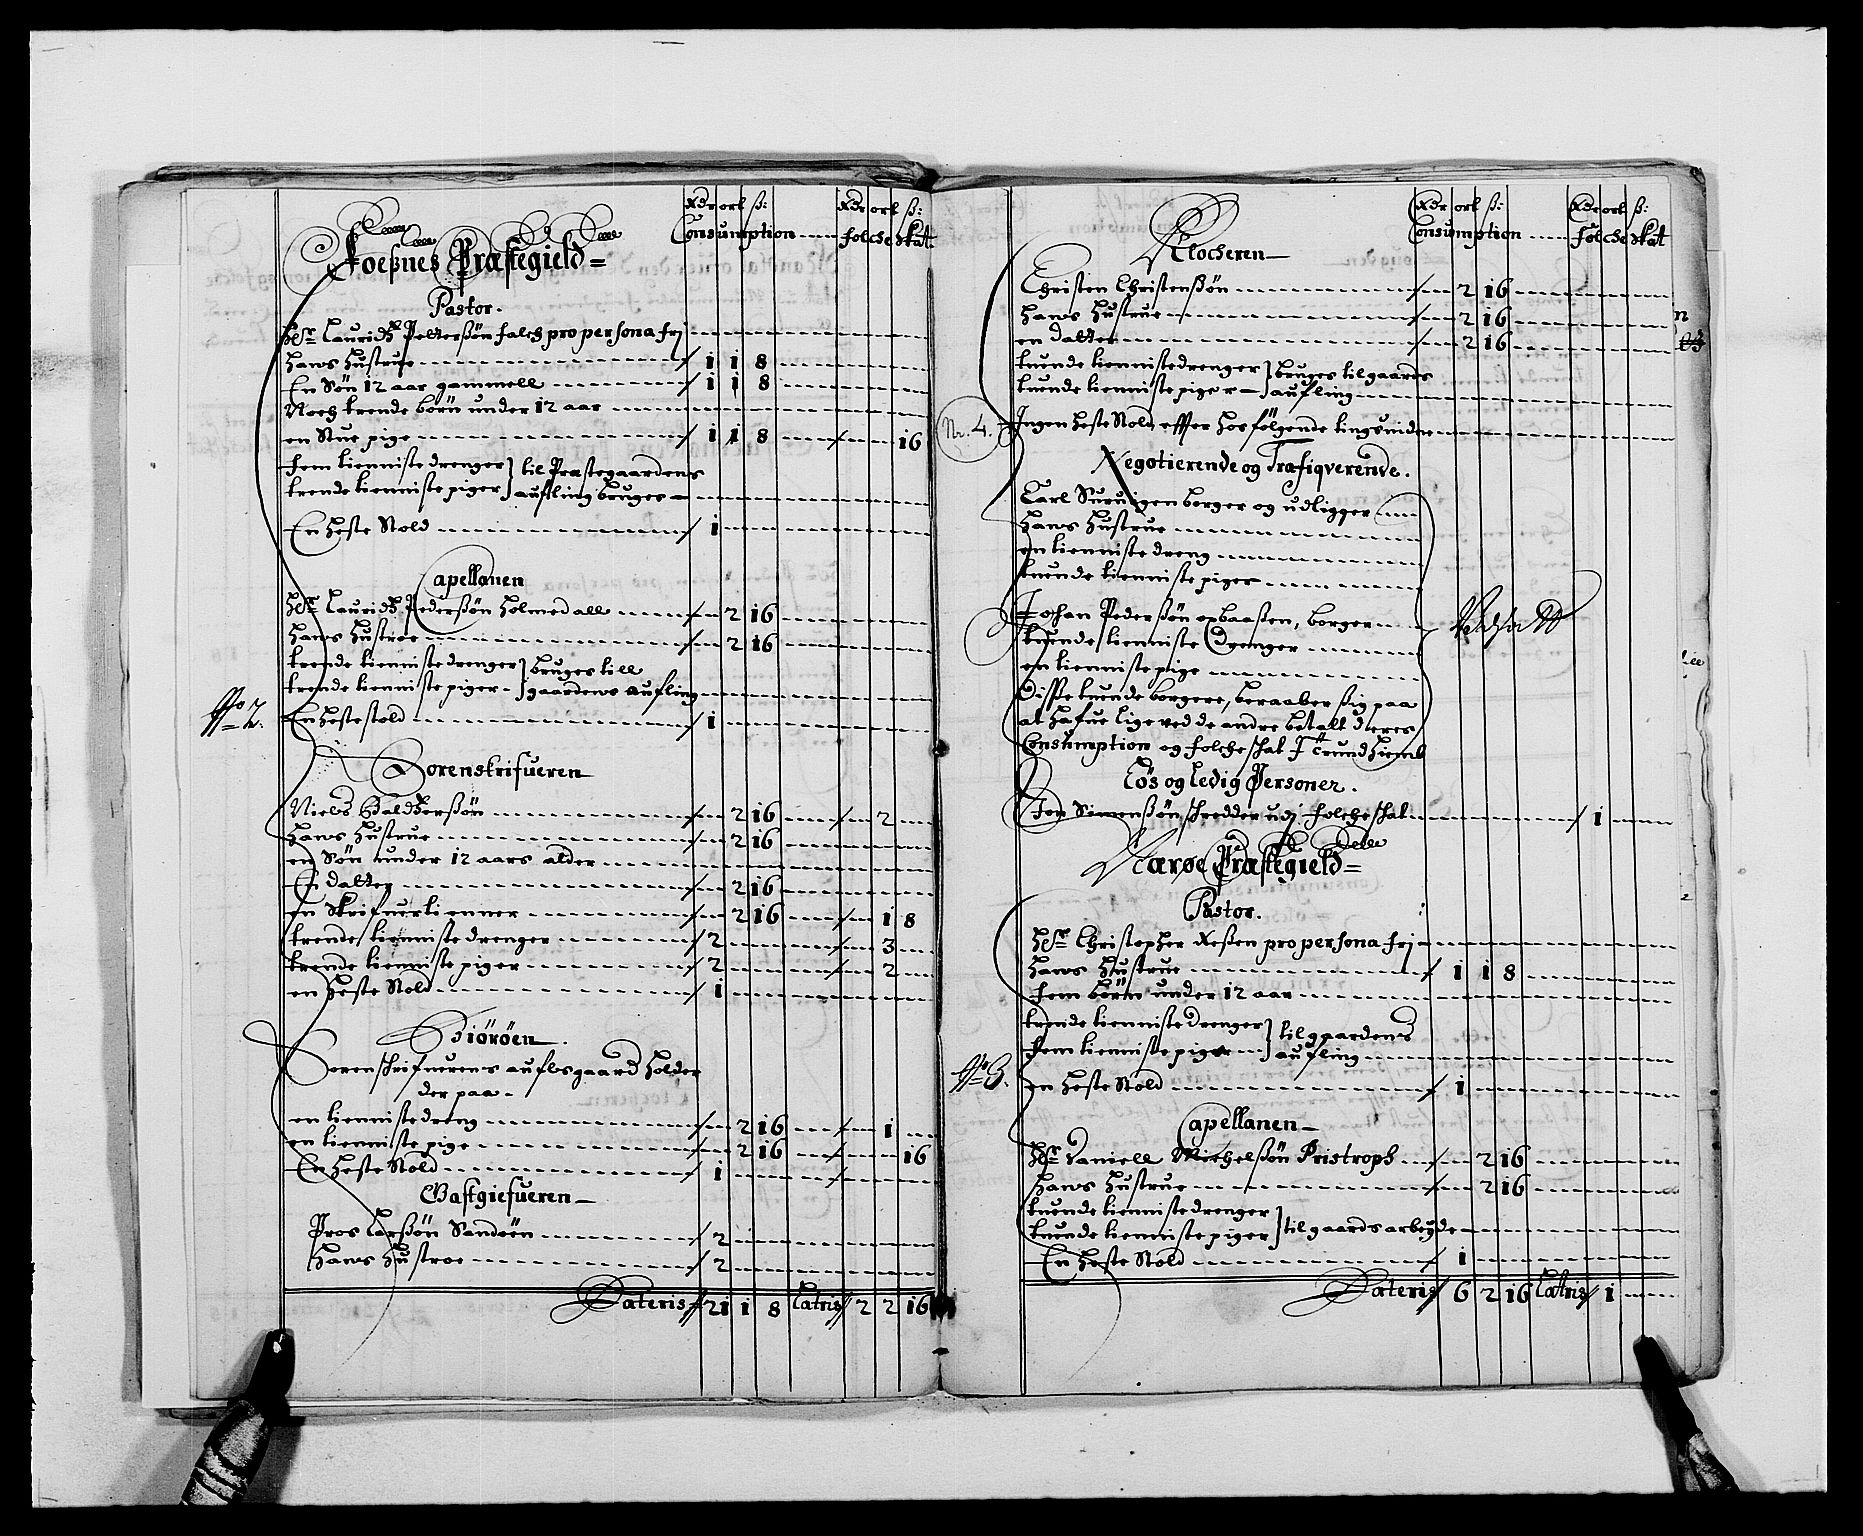 Rdr ort ß: Rdr ort ß:
Consumption folche Skat
Foeßnes Præstegield
Pastor.
Hr Lauridtz Pettersøn falch pro persona fri
Hans Hustrue 1 1 8
En Søn 12 aar gammell 1 1 8
Noch trende børn under 12 aar
en Stue pige 1 1 8 16
fem tienniste drenger } til Præstegaardens
trende tienniste piger } aufling bruges
En Heste Stold 1
Capellanen
Hr Lauridtz Pederßøn Holmedall 2 16
Hans Hustroe 2 16
trende tienniste drenger } bruges till
trende tienniste piger } gaardens aufling
No 2. En Heste stold 1
Sorenskrifueren
Niels Baldtzerßøn 2 16 2
Hans Hustrue 2 16
en Søn under 12 aars alder
En datter 2 16
en Skrifuertienner 2 16 1 8
trende tienniste drenger 2 3
trende tienniste piger 2 2
en Heste Stold 1
Biöröen
Sorenschrifuerens auflsgaard Holder
der paa
en tienniste dreng 2 16 1
en tienniste pige 2 16 16
En Heste Stold 1
Gastgiefueren
Pros Larßøn Sandøen 2
Hans Hustroe 2
Lateris 21 1 8 Latris 2 2 16
Rdr ort ß: Rdr ort ß:
Consumption folche Skat
Klocheren
Christen Christenßøn 2 16
Hans Hustrue 2 16
en datter 2 16
tuende tienniste drenger } bruges til gaards
tuende tienniste piger } aufling
No. 4. Ingen Heste Stold, effter Hosfølgende tingsvidne
Negotierende og Trafiqverende.
Carl borger og udligger
Hans Hustrue
en tienniste dreng
tuende tienniste piger
Johan Pederßøn borger
tuende tienniste Drenger
en tienniste pige
Disse tuende borgere, beraaber sig paa
at Hafue lige ved de andre betalt deres
Consumption og folcheschat I Trundhiemb
Løs og Ledig Personer.
Jon Simenßøn schredder udj folcheschat 1
Nærøe Præstegield
Pastor.
Hr Christopher Reßen pro persona fri
Hans Hustrue 1 1 8
fem børn under 12 aar
trende tienniste drenger } til gaardens
fem tienniste piger } aufling
No 3. en Heste Stold 1
Capellanen
Hr Daniell Michelßøn Pristroph 2 16
Hans Hustrue 2 16
tuende tienniste drenger
tuende tienniste piger } til gaards arbeyde
En Heste Stold 1
Lateris 6 2 16 Latris 1